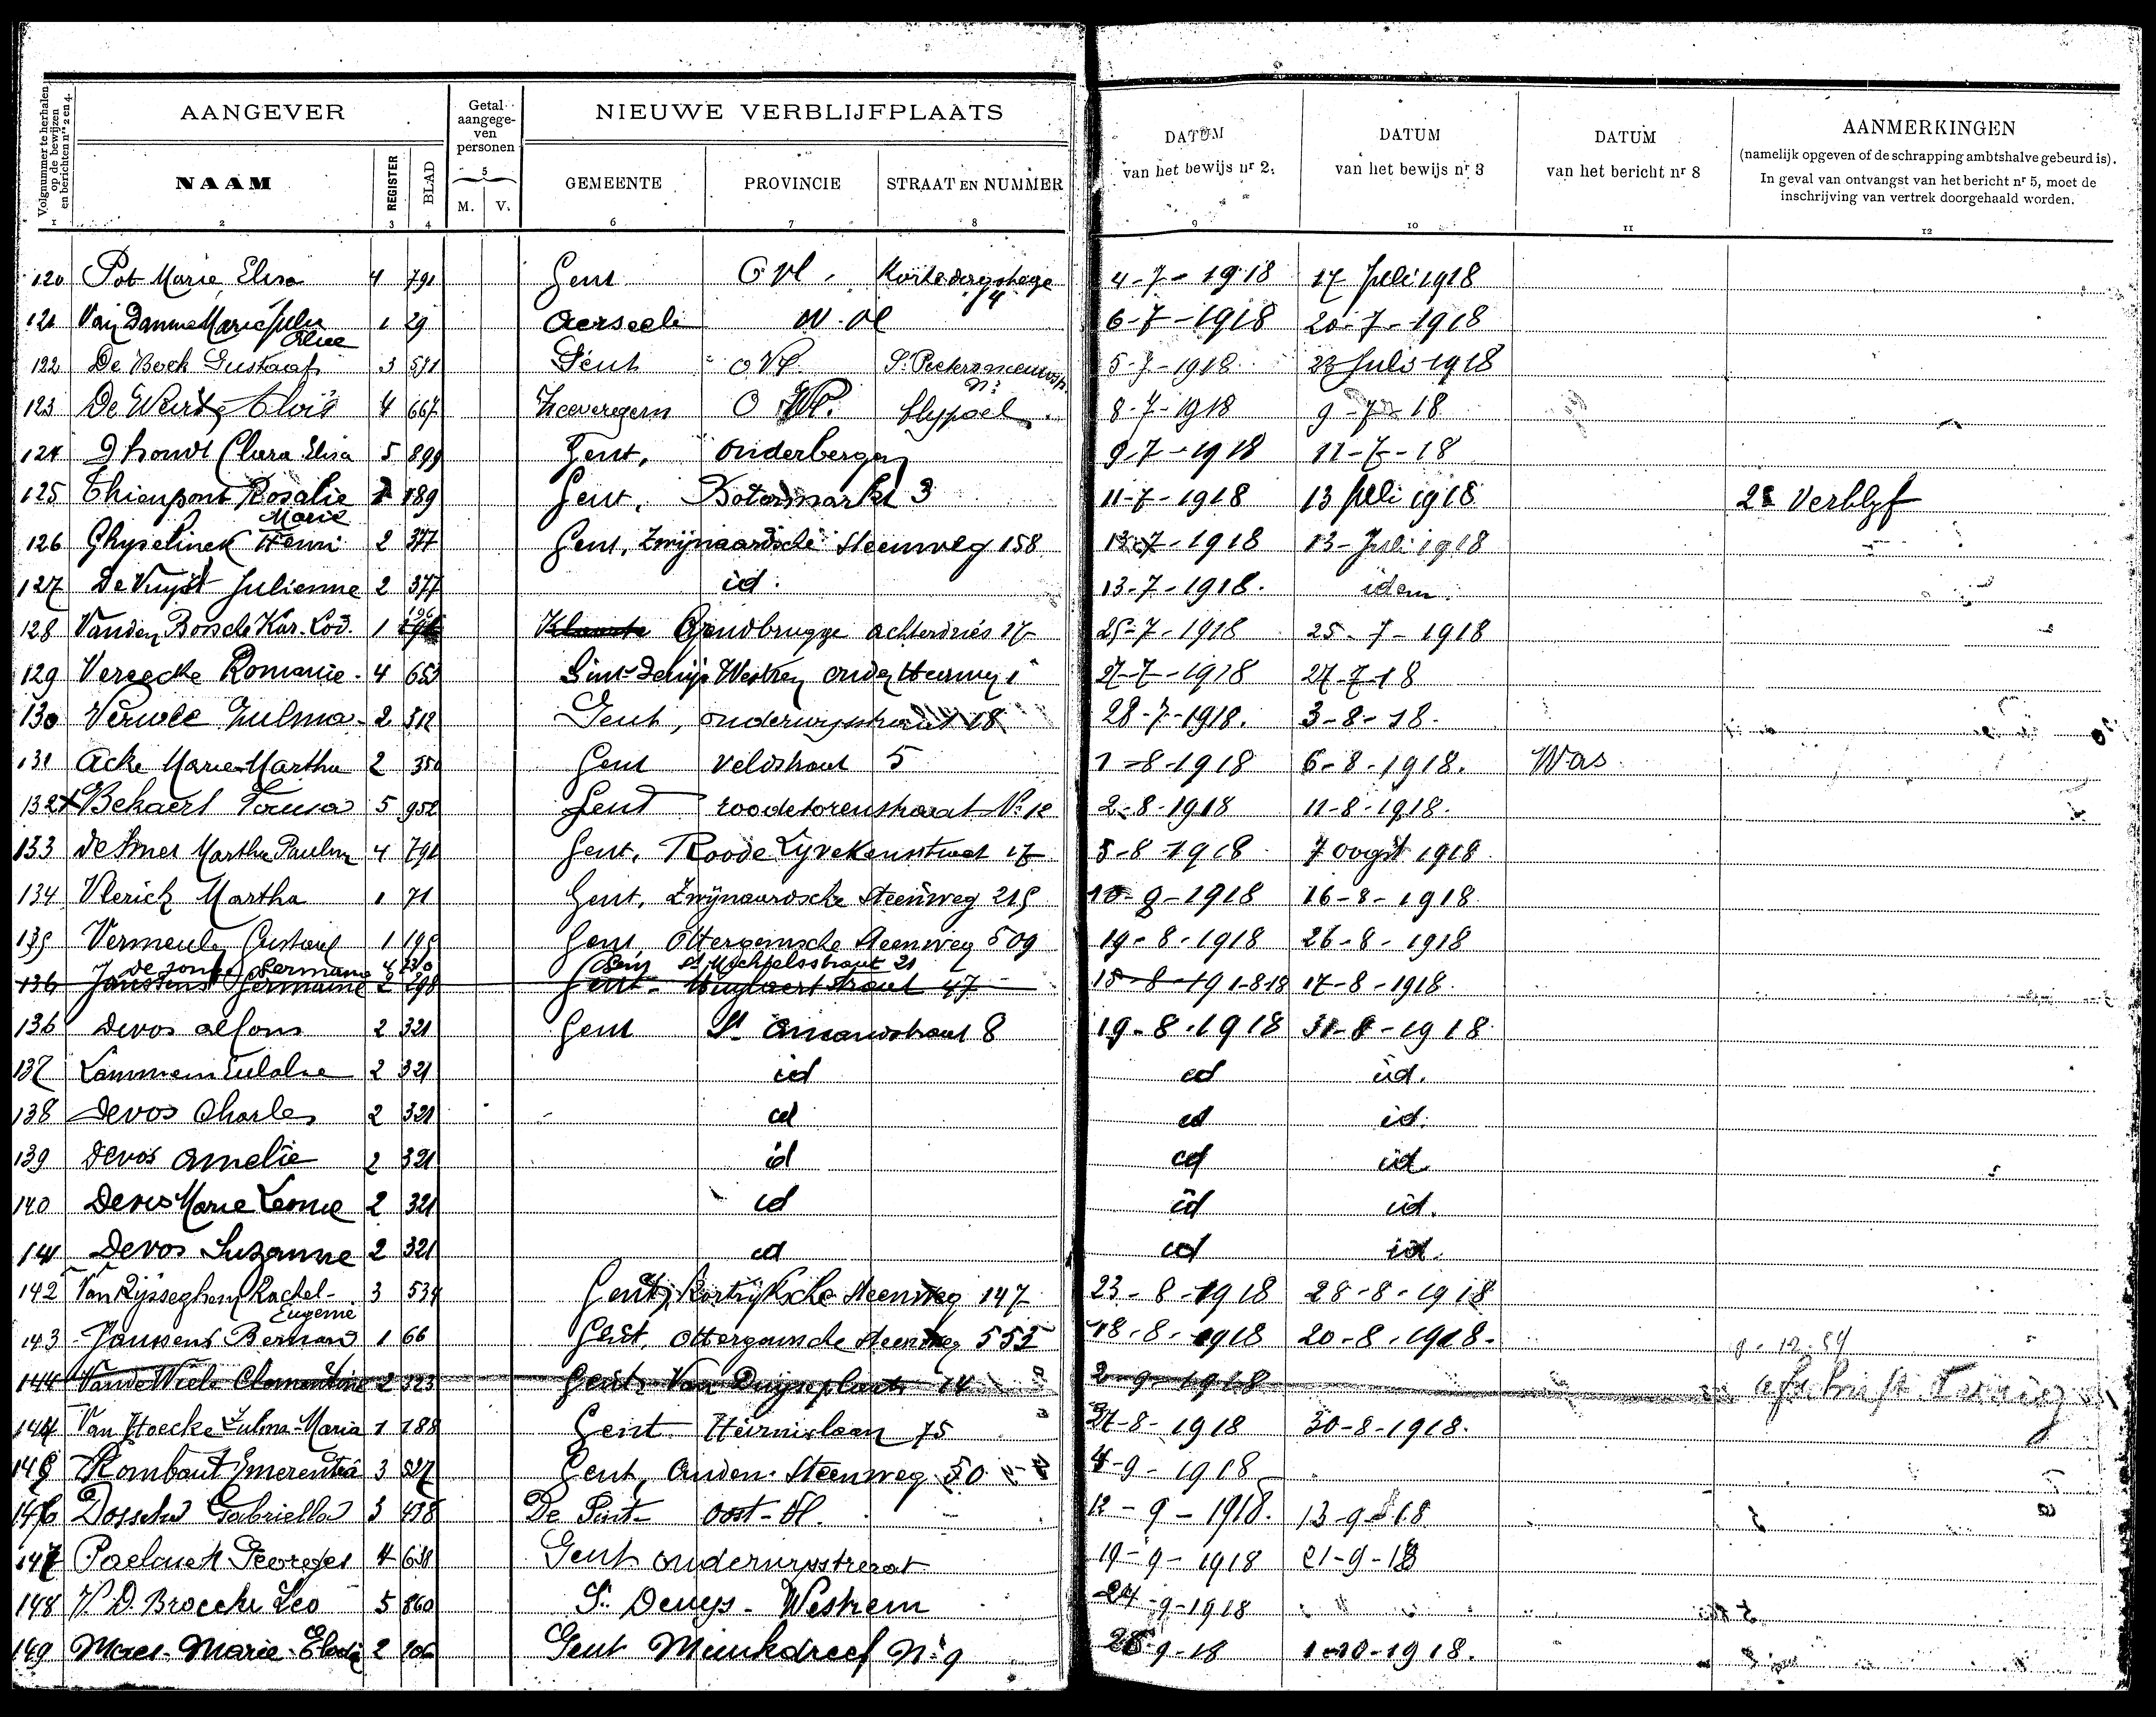 Volgnummer te herhalen op de bewijzen en berichten nrs 2 en 4.
AANGEVER
Getal aangegeven personen
NIEUWE VERBLIJFPLAATS
DATUM van het bewijs nr 2.
DATUM van het bewijs nr 3
DATUM van het bericht nr 8
AANMERKINGEN
(namelijk opgeven of de schrapping ambtshalve gebeurd is).
In geval van ontvangst van het bericht nr 5, moet de
inschrijving van vertrek doorgehaald worden.
NAAM REGISTER BLAD 5 M. V. GEMEENTE PROVINCIE STRAAT EN NUMMER
1 2 3 4 6 7 8 9 10 11 12
120 Pot Marie Elisa 4 791 Gent O Vl. 4-7-1918 17 Juli 1918
121 Van Damme Marie Julie 1 29 Aerseele W. Vl 6-7-1918 20-7-1918
122 De Bock Gustaaf 3 571 Gent O Vl. 5-7-1918 23 Juli 1918
123 4 667 Zeeveregem O Vl. 8-7-1918 9-7-18
124 Dhondt Clara Elisa 5 899 Gent, Onderbergen 9-7-1918 11-7-18
125 Thienpont Rosalie Marie 189 Gent, Botermarkt 3 11-7-1918 13 Juli 1918 Verblyf
126 Ghyselinck Henri 2 377 Gent, Zwijnaardsche Steenweg 158 13-7-1918 13 Juli 1918
127 De Vuyst Julienne 2 377 id. 13-7-1918. idem.
128 Vanden Bossche Kar. Lod. 1 Gendbrugge Achterdries 17 25-7-1918 25-7-1918
129 Vereecke Romanie 4 653 Sint Denijs Westrem 27-7-1918 27-7-18
130 Zulma 2 512 Gent, Onderwysstraat 18 28-7-1918. 3-8-18.
131 Acke Marie Martha 2 350 Gent Veldstraat 5 1-8-1918 6-8-1918. Was
132 Bekaert 5 952 Gent roodetorenstraat No 12 2-8-1918 11-8-1918.
133 De Smet Martha Paulin 4 791 Gent, Roode Lyvekensstraat 17 5-8-1918 7 oogst 1918
134 Vlerick Martha 1 71 Gent, Zwynaardsche Steenweg 215 10-8-1918 16-8-1918
135 Vermeulen Gustaaf 1 195 Gent, Ottergemsche Steenweg 509 19-8-1918 26-8-1918
de jonge Germaine St Michielsstraat 21
136 Janssens Germaine 2 298 Gent 47 17-8-1918.
136 Devos Alfons 2 321 Gent St Amandstraat 8 19-8-1918 31-8-1918
137 Lammens Eulalie 2 321 id id id.
138 Devos Charles 2 321 id id id.
139 Devos Amelie 2 321 id id id.
140 Devos Marie Leonie 2 321 id id id.
141 Devos Suzanne 2 321 id id id.
142 Van Rysseghem Rachel Eugenie 3 534 Gent, Kortryksche Steenweg 147 23-8-1918 28-8-1918
143 Janssens Bernard 1 66 Gent, Ottergemsche Steenweg 552 18-8-1918 20-8-1918.
144 Van de Wiele Clementine 2 323 Gent, Van Duyseplaats 14 2-9-1918 afschrift
144 Van Hoecke Zulma-Maria 1 188 Gent Heirnislaan 75 27-8-1918 30-8-1918.
145 Rombaut Emerentia 3 527 Gent, Steenweg 50 4-9-1918
146 Dossche Gabriella 3 438 De Pint Oost-Vl. 12-9-1918. 13-9-18
147 Georges 4 638 Gent Onderwysstraat 19-9-1918 21-9-18
148 V. D. Broecke Leo 5 860 St Denys-Westrem 24-9-1918
149 Maes Marie Elodie 2 Gent Meinkdreef No 9 26-9-18 1-10-1918.